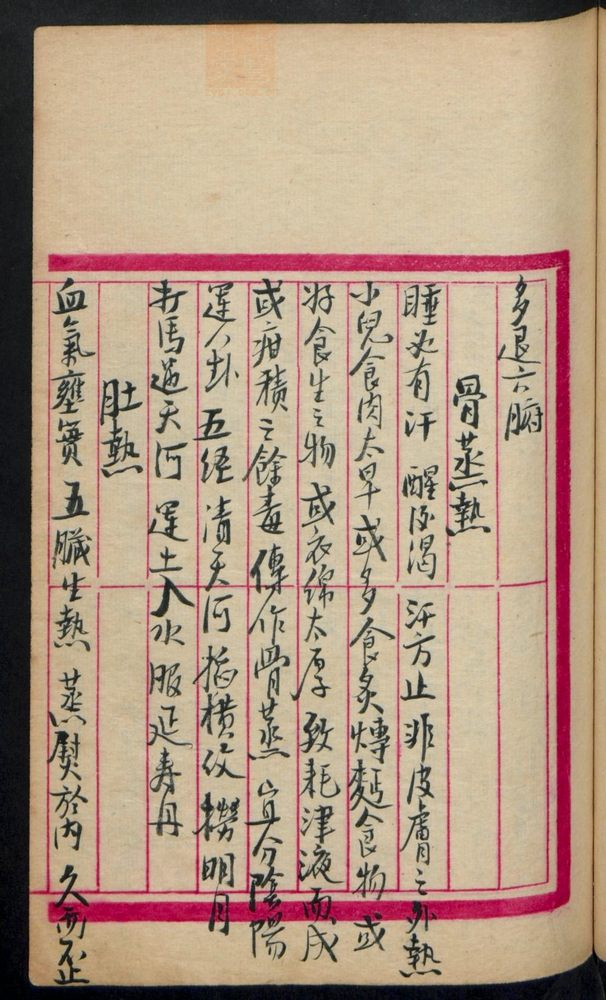 多退六腑
骨蒸熱
睡必有汗 醒後渴 汗方止 非皮膚之外熱
小兒食肉太早或多食炙煿麵食物或
好食生之物 或衣綿太厚 致耗津液而成
或疳積之餘毒 傳作骨蒸 宜分陰陽
運八卦 五經 清天河 掐橫紋 撈明月
打馬過天河 運土入水 服延壽丹
肚熱
血氣壅實 五臟生熱 蒸熨於內 久而不止